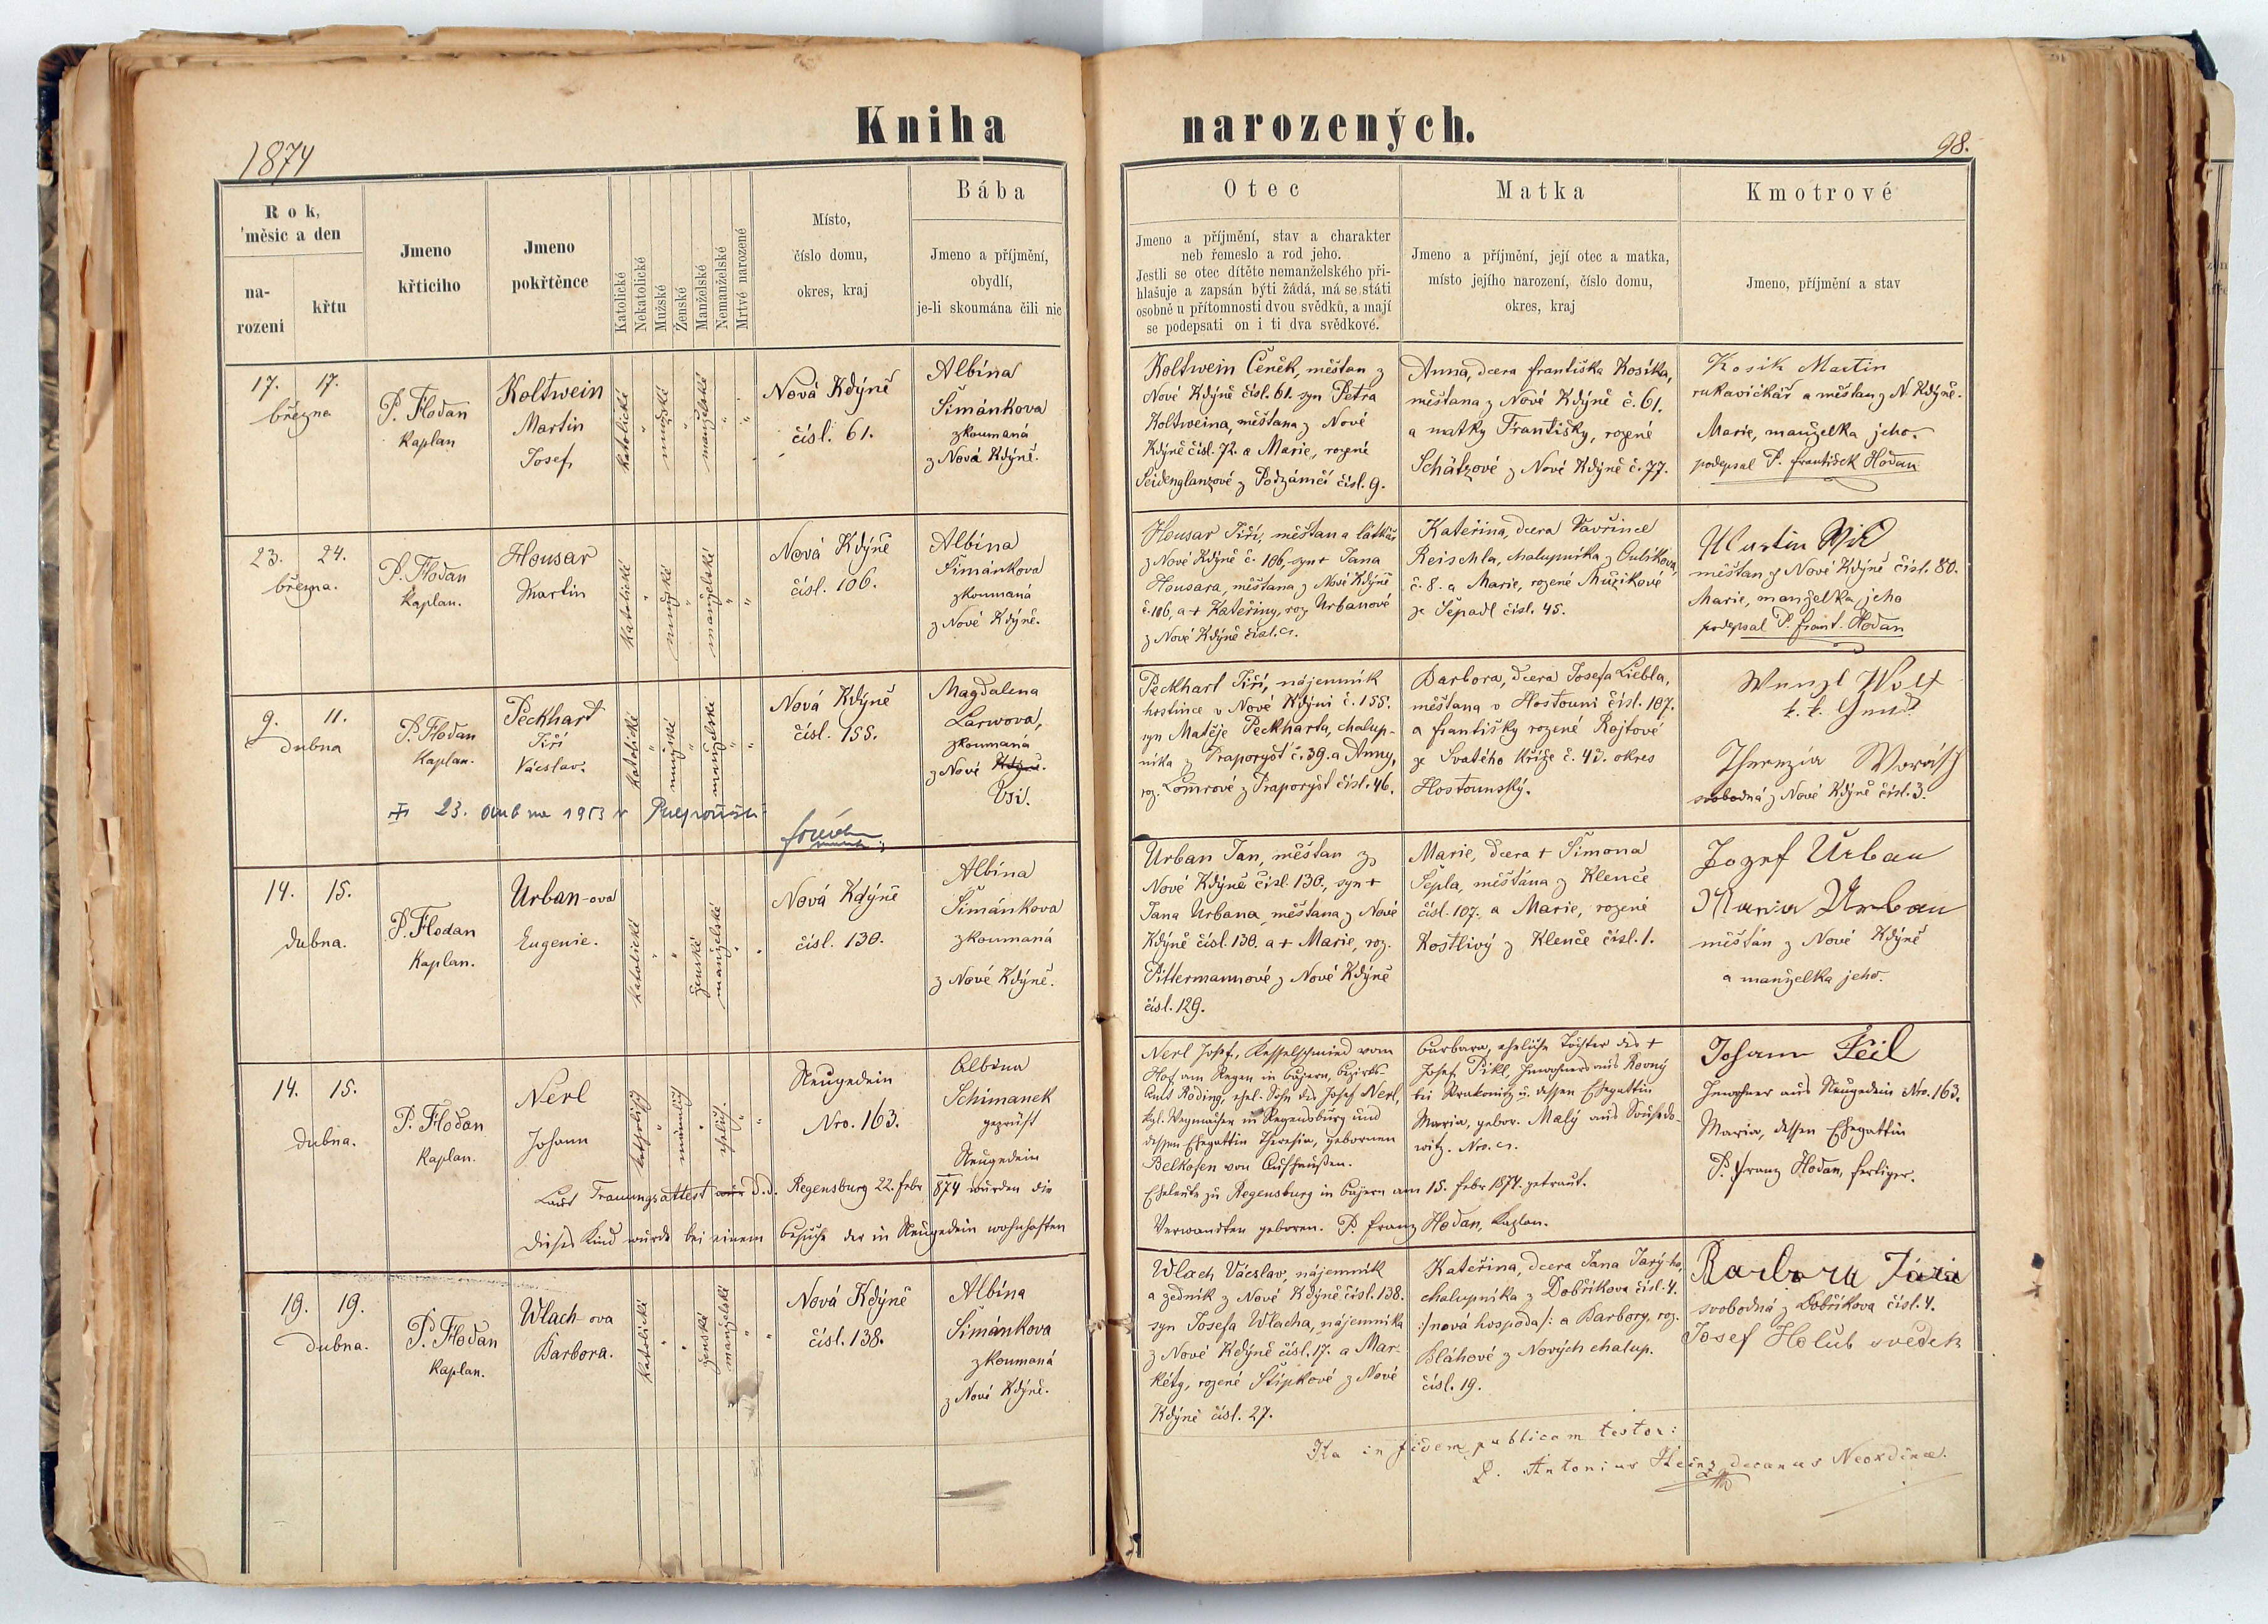 Kniha narozených.
1874
98.
Rok,
měsíc a den
na-
rození
křtu
Jmeno
křticího
Jmeno
pokřtěnce
Katolické
Nekatolické
Mužské
Ženské
Manželské
Nemanželské
Mrtvé narozené
Místo,
číslo domu,
okres, kraj
Bába
Jmeno a příjmění,
obydlí,
je-li skoumána čili nic
Otec
Jmeno a příjmění, stav a charakter
neb řemeslo a rod jeho.
Jestli se otec dítěte nemanželského při-
hlašuje a zapsán býti žádá, má se státi
osobně u přítomnosti dvou svědků, a mají
se podepsati on i ti dva svědkové.
Matka
Jmeno a příjmění, její otec a matka,
místo jejího narození, číslo domu,
okres, kraj
Kmotrové
Jmeno, příjmění a stav
17. 17.
března
P. Hodan
Kaplan
Koltwein
Martin
Josef
katolické
mužské
manželské
Nová Kdýně
čísl. 61.
Albína
Šimánkova
zkoumaná
z Nová Kdýně.
Koltwein Čeněk, měštan z
Nové Kdýně čísl. 61. syn Petra
Koltweina, měštana z Nové
Kdýně čísl. 72. a Marie, rozené
Seidenglanzové z Podzámčí čísl. 9.
Anna, dcera Františka Kosíka,
měštana z Nové Kdýně č. 61.
a matky Františky, rozené
Schätzové z Nové Kdýně č. 77.
Kosik Martin
rukavičkář a měštan z N. Kdýně.
Marie, manželka jeho.
podepsal P. František Hodan
23. 24.
března.
P. Hodan
Kaplan.
Housar
Martin
katolické
mužské
manželské
Nová Kdýně
čísl. 106.
Albína
Šimánkova
zkoumaná
z Nové Kdýně.
Housar Jiří, měštan a látkář
z Nové Kdýně č. 106, syn + Jana
Housara, měštana z Nové Kdýně
č. 106, a + Kateřiny, roz. Urbanové
z Nové Kdýně čísl.
Kateřina, dcera Vavřince
Reischla, chalupníka z
č. 8. a Marie, rozené Mužikové
ze Šepadl čísl. 45.
Martin
měštan z Nové Kdýně čísl. 80.
Marie, manželka jeho
podepsal P. Frant. Hodan
9. 11.
dubna
P. Hodan
Kaplan.
Peckhart
Jiří
Václav.
katolické
mužské
manželské
Nová Kdýně
čísl. 155.
Magdalena
zkoumaná
z Nové Kdýně.
Vsi.
23. dubna 1953 v
Peckhart Jiří, nájemník
hostince v Nové Kdýni č. 155.
syn Matěje Peckharta, chalup-
níka z Draporyšť č. 39. a Anny,
roz. Lomrové z Praporyšť čísl. 46.
Barbora, dcera Josefa Liebla,
měštana v Hostouni čísl. 107.
a Františky rozené Rojtové
ze Svatého Kříže č. 45. okres
Hostounský.
Wenzl Wolf
Therezia
svobodná z Nové Kdýně čísl. 3.
14. 15.
dubna.
P. Hodan
Kaplan.
Urban-ova
Eugenie.
katolické
ženské
manželské
Nová Kdýně
čísl. 130.
Albína
Šimánkova
zkoumaná
z Nové Kdýně.
Urban Jan, měštan z
Nové Kdýně čísl. 130., syn +
Jana Urbana, měštana z Nové
Kdýně čísl. 130. a + Marie, roz.
Pittermannové z Nové Kdýně
čísl. 129.
Marie, dcera + Šimona
Šepla, měštana z Klenče
čísl. 107. a Marie, rozené
Kostlivý z Klenče čísl. 1.
Jozef Urban
Maria Urban
měštan z Nové Kdýně
a manželka jeho.
14. 15.
dubna.
P. Hodan
Kaplan.
Nerl
Johann
katholisch
männlich
ehelich.
Neugedein
Nro. 163.
Albina
Schimanek
geprüft
Neugedein
Nerl Josef, Kesselschmied vom
Hof am Regen in Bajern, Bezirks-
Amt Roding, ehel. Sohn des Josef Nerl,
kgl. Wegmacher in Regensburg und
dessen Ehegattin Theresia, gebornen
Belkofen von Aufhaußen.
Barbara, eheliche Tochter des +
Josef Pikl, Inwohners aus Rovný
bei Strakonitz u. dessen Ehegattin
Maria, gebor. Malý aus
witz. Nro.
Johann Feil
Inwohner aus Neugedein Nro. 163.
Maria, dessen Ehegattin
P. Franz Hodan, fertiger.
Laut Trauungsattest d.d. Regensburg 22. Febr 874 wurden die Eheleute zu Regensburg in Bajern am 15. Febr 1874. getraut.
Dieses Kind wurde bei einem Besuche der in Neugedein wohnhaften Verwandten geboren. P. Franz Hodan, Kaplan.
19. 19.
dubna.
P. Hodan
Kaplan.
Wlach-ova
Barbora.
katolické
ženské
manželské
Nová Kdýně
čísl. 138.
Albína
Šimánkova
zkoumaná
z Nové Kdýně.
Wlach Václav, nájemník
a zedník z Nové Kdýně čísl. 138.
syn Josefa Wlacha, nájemníka
z Nové Kdýně čísl. 17. a Mar-
kéty, rozené Štípkové z Nové
Kdýně čísl. 27.
Kateřina, dcera Jana Jarýho,
chalupníka z Dobříkova čísl. 4.
:/nová hospoda/: a Barbory, roz.
Bláhové z Nových chalup.
čísl. 19.
Barbora
svobodná z Dobříkova čísl. 4.
Josef Holub svědek
Ita in fidem publicam testor:
P. Antonius Heinz decanus Neokdinae.